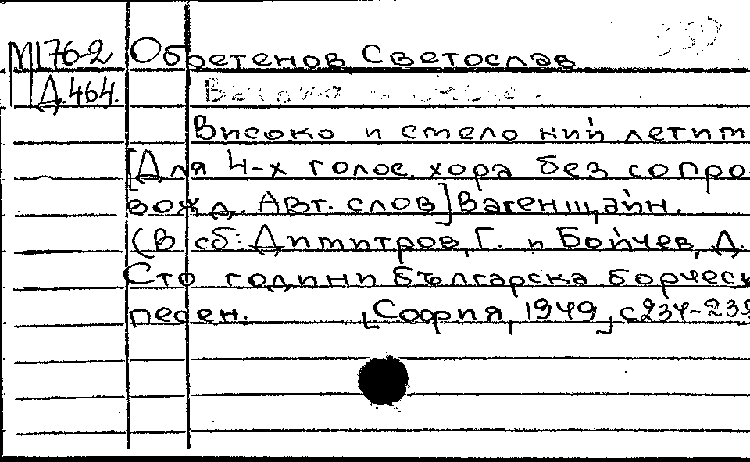 М176-2 Обретенов Светослав
Д.464.
Високо и смело ний летим
[Для 4-х голос. хора без сопро-
вожд. Авт. слов] Вагенщайн.
(В сб: Димитров, Г. и Бойчев, Д.
Сто години българска борческ
песен. [София, 1949, с234-235